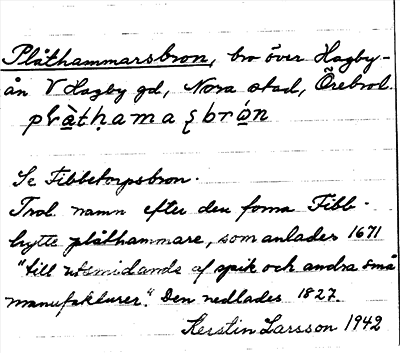 Plåthammarsbron, bro över Hagby-
ån V Hagby gd, Nora stad, Örebro l.
plàthama ʂbrón
Se Fibbetorpsbron.
Trol. namn efter den forna Fibb-
hytte plåthammare, som anlades 1671
"till utsmidande af spik och andra små
manufakturer". Den nedlades 1827.
Kerstin Larsson 1942